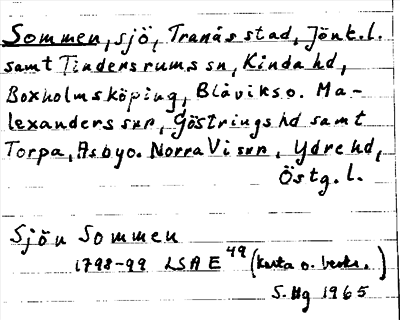 Sommen, sjö, Tranås stad, Jönk.l.
samt Tinders rums sn, Kinda hd,
Boxholms köping, Blåviks o. Ma-
lexanders snr, Göstrings hd samt
Torpa, Asby o. Norra Vi snr, Ydre hd,
Östg.l.
Sjön Sommen
1798-99 LSA E 49 (karta o. beskr.)
S. Hg 1965